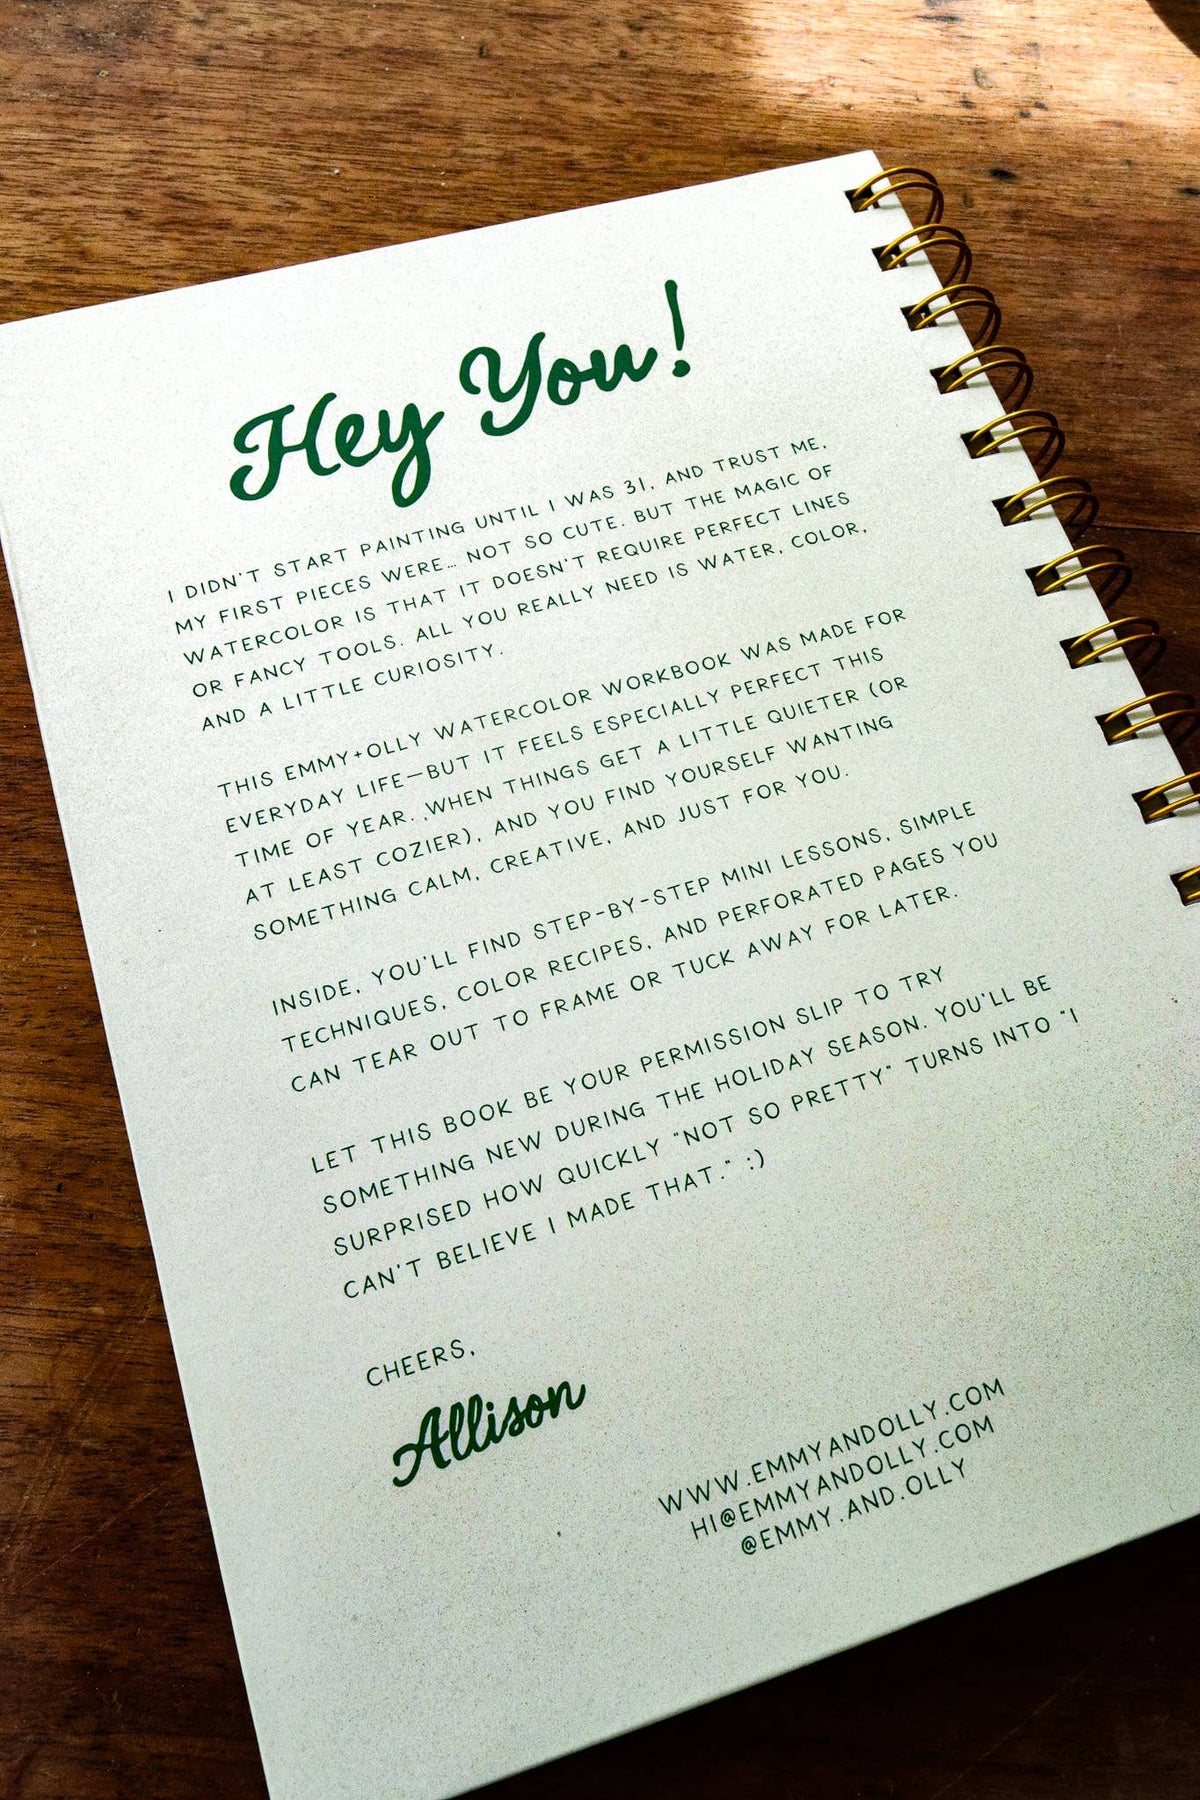 Hey You!
I DIDN'T START PAINTING UNTIL I WAS 31, AND TRUST ME,
MY FIRST PIECES WERE... NOT SO CUTE. BUT THE MAGIC OF
WATERCOLOR IS THAT IT DOESN'T REQUIRE PERFECT LINES
OR FANCY TOOLS. ALL YOU REALLY NEED IS WATER, COLOR,
AND A LITTLE CURIOSITY.
THIS EMMY+OLLY WATERCOLOR WORKBOOK WAS MADE FOR
EVERYDAY LIFE—BUT IT FEELS ESPECIALLY PERFECT THIS
TIME OF YEAR. ,WHEN THINGS GET A LITTLE QUIETER (OR
AT LEAST COZIER), AND YOU FIND YOURSELF WANTING
SOMETHING CALM, CREATIVE, AND JUST FOR YOU.
INSIDE, YOU'LL FIND STEP-BY-STEP MINI LESSONS, SIMPLE
TECHNIQUES, COLOR RECIPES, AND PERFORATED PAGES YOU
CAN TEAR OUT TO FRAME OR TUCK AWAY FOR LATER.
LET THIS BOOK BE YOUR PERMISSION SLIP TO TRY
SOMETHING NEW DURING THE HOLIDAY SEASON. YOU'LL BE
SURPRISED HOW QUICKLY "NOT SO PRETTY" TURNS INTO "I
CAN'T BELIEVE I MADE THAT." :)
CHEERS,
Allison
WWW.EMMYANDOLLY.COM
HI@EMMYANDOLLY.COM
@EMMY.AND.OLLY